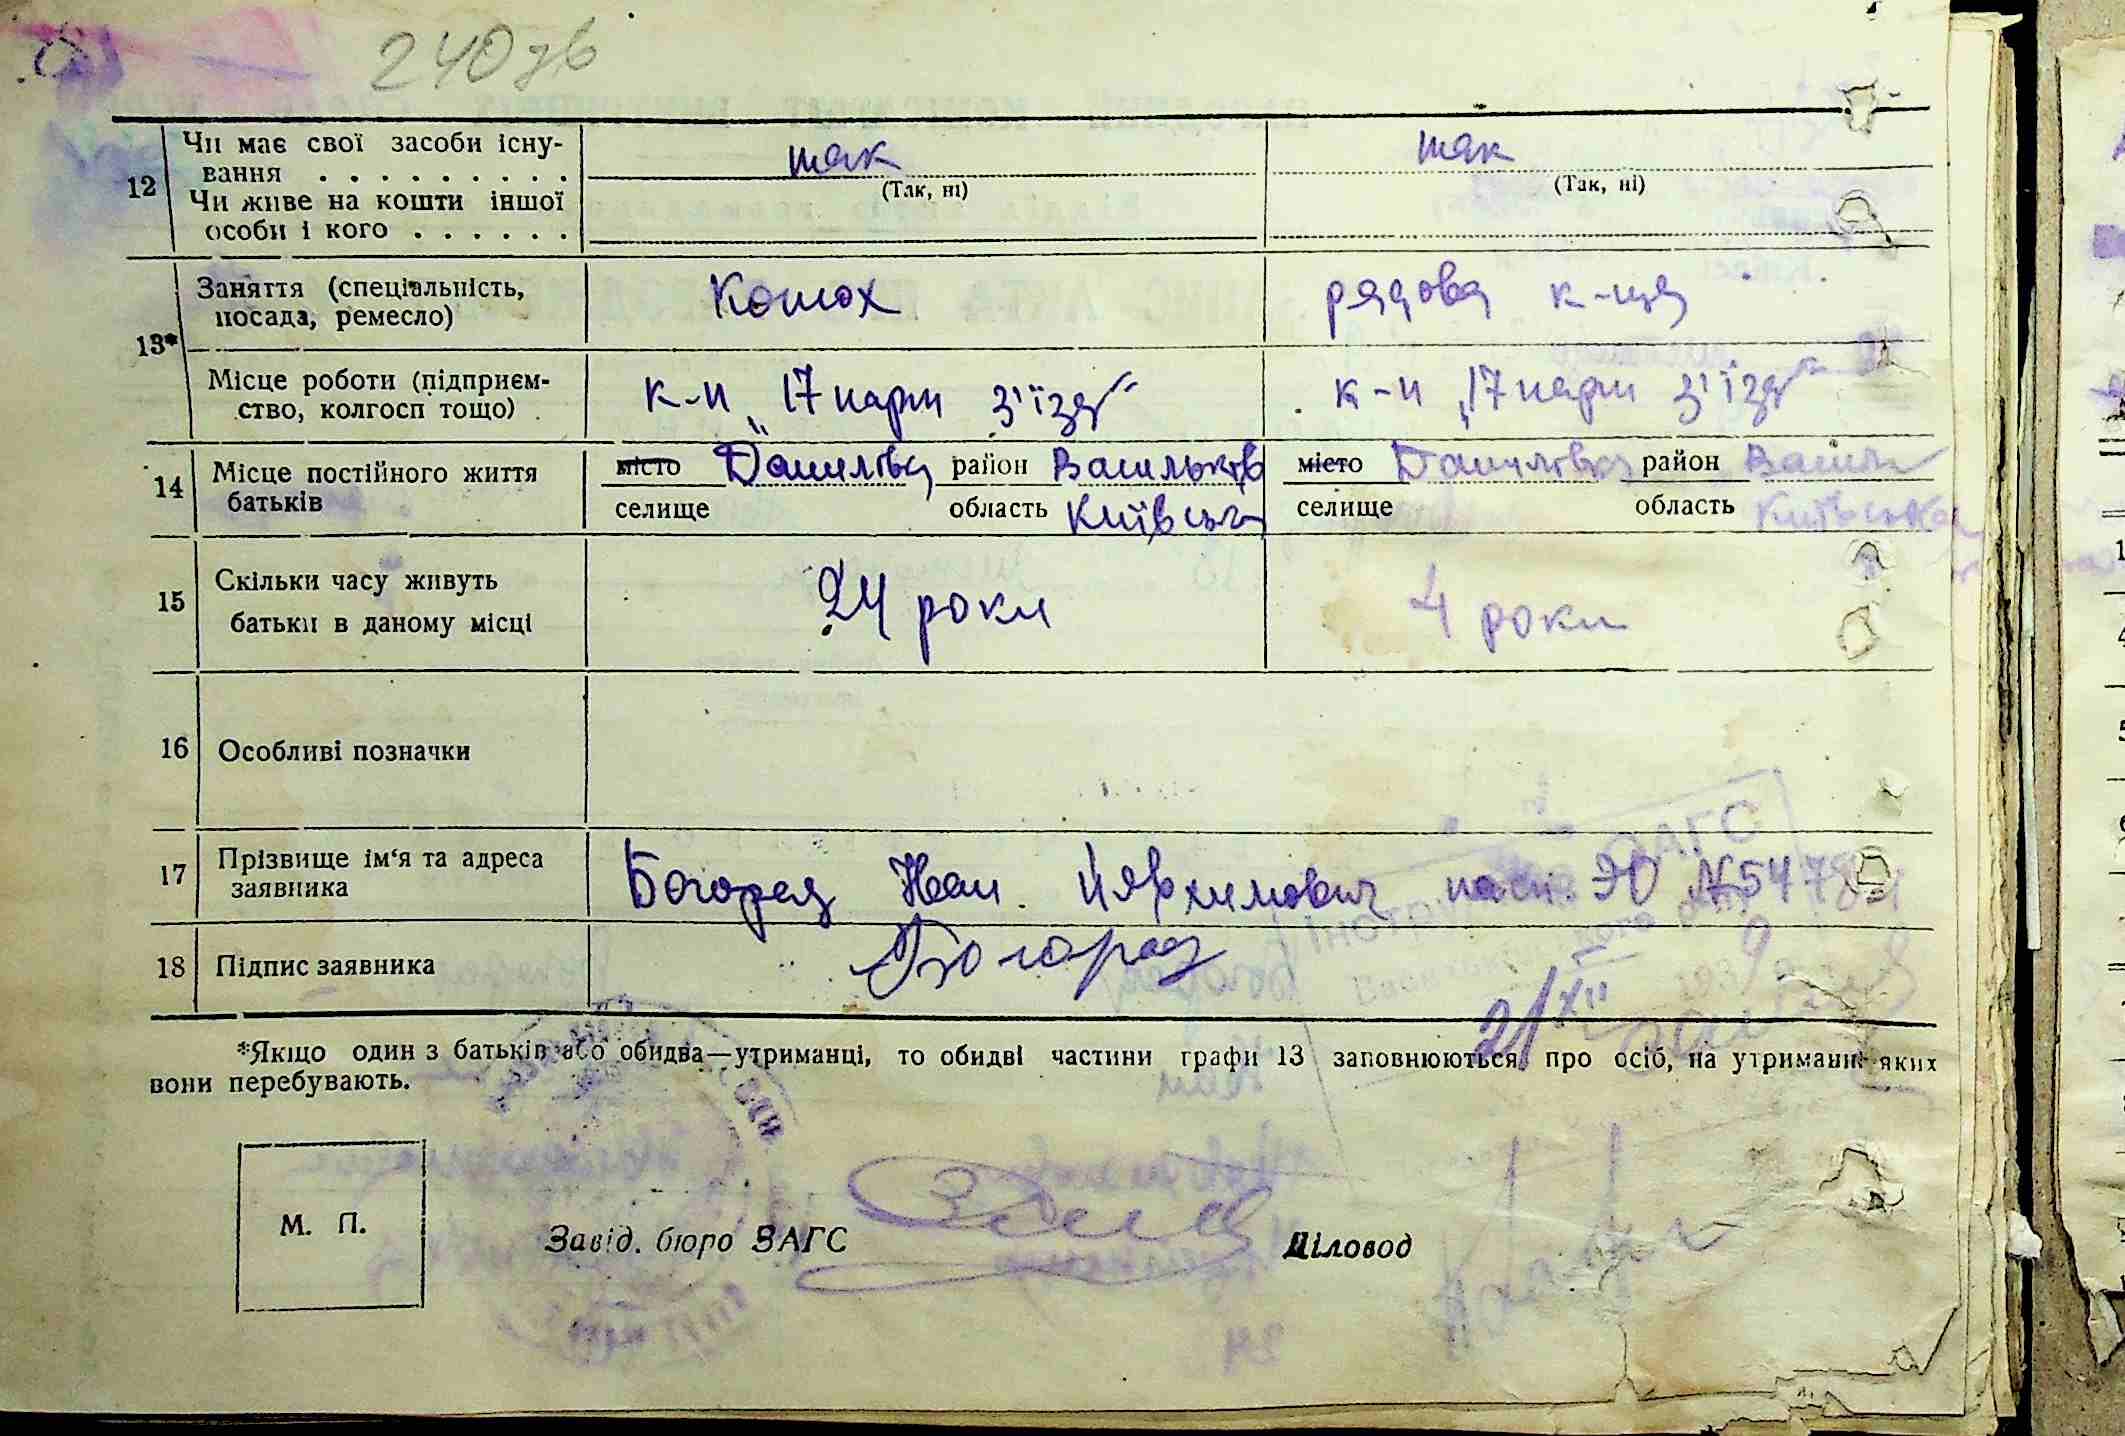 240зв
12 Чи має свої засоби існу-
вання . . . . . . . . . так так
(Так, ні) (Так, ні)
Чи живе на кошти іншої
особи і кого . . . . . .
13* Заняття (спеціальність,
посада, ремесло) Конюх рядова к-ця
Місце роботи (підприєм-
ство, колгосп тощо) к-п „17 парт з'їзд" к-п „17 парт з'їзд"
14 Місце постійного життя
батьків місто Данилівка район Васильків місто Данилівка район Василь
селище область Київська селище область Київська
15 Скільки часу живуть
батьки в даному місці 24 роки 4 роки
16 Особливі позначки
17 Прізвище ім'я та адреса
заявника Богорад Іван пасп. ЭЮ №547
18 Підпис заявника Богорад
ЗАГС
21/XII
*Якщо один з батьків або обидва—утриманці, то обидві частини графи 13 заповнюються про осіб, на утриманні яких
вони перебувають.
М. П.
Завід. бюро ЗАГС Діловод